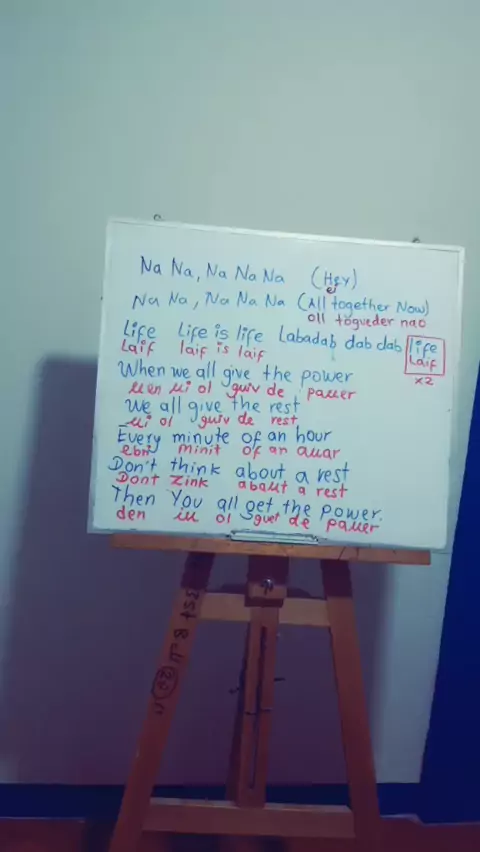 Na Na, Na Na Na (Hey)
ei
Na Na, Na Na Na (All together Now)
oll togueder nao
Life Life is life Labadab dab dab life
Laif laif is laif Laif
x2
When we all give the power
uen ui ol guiv de pauer
We all give the rest
ui ol guiv de rest
Every minute of an hour
ebri minit of an auar
Don't think about a rest
Dont zink abaut a rest
Then You all get the power.
den iu ol guet de pauer